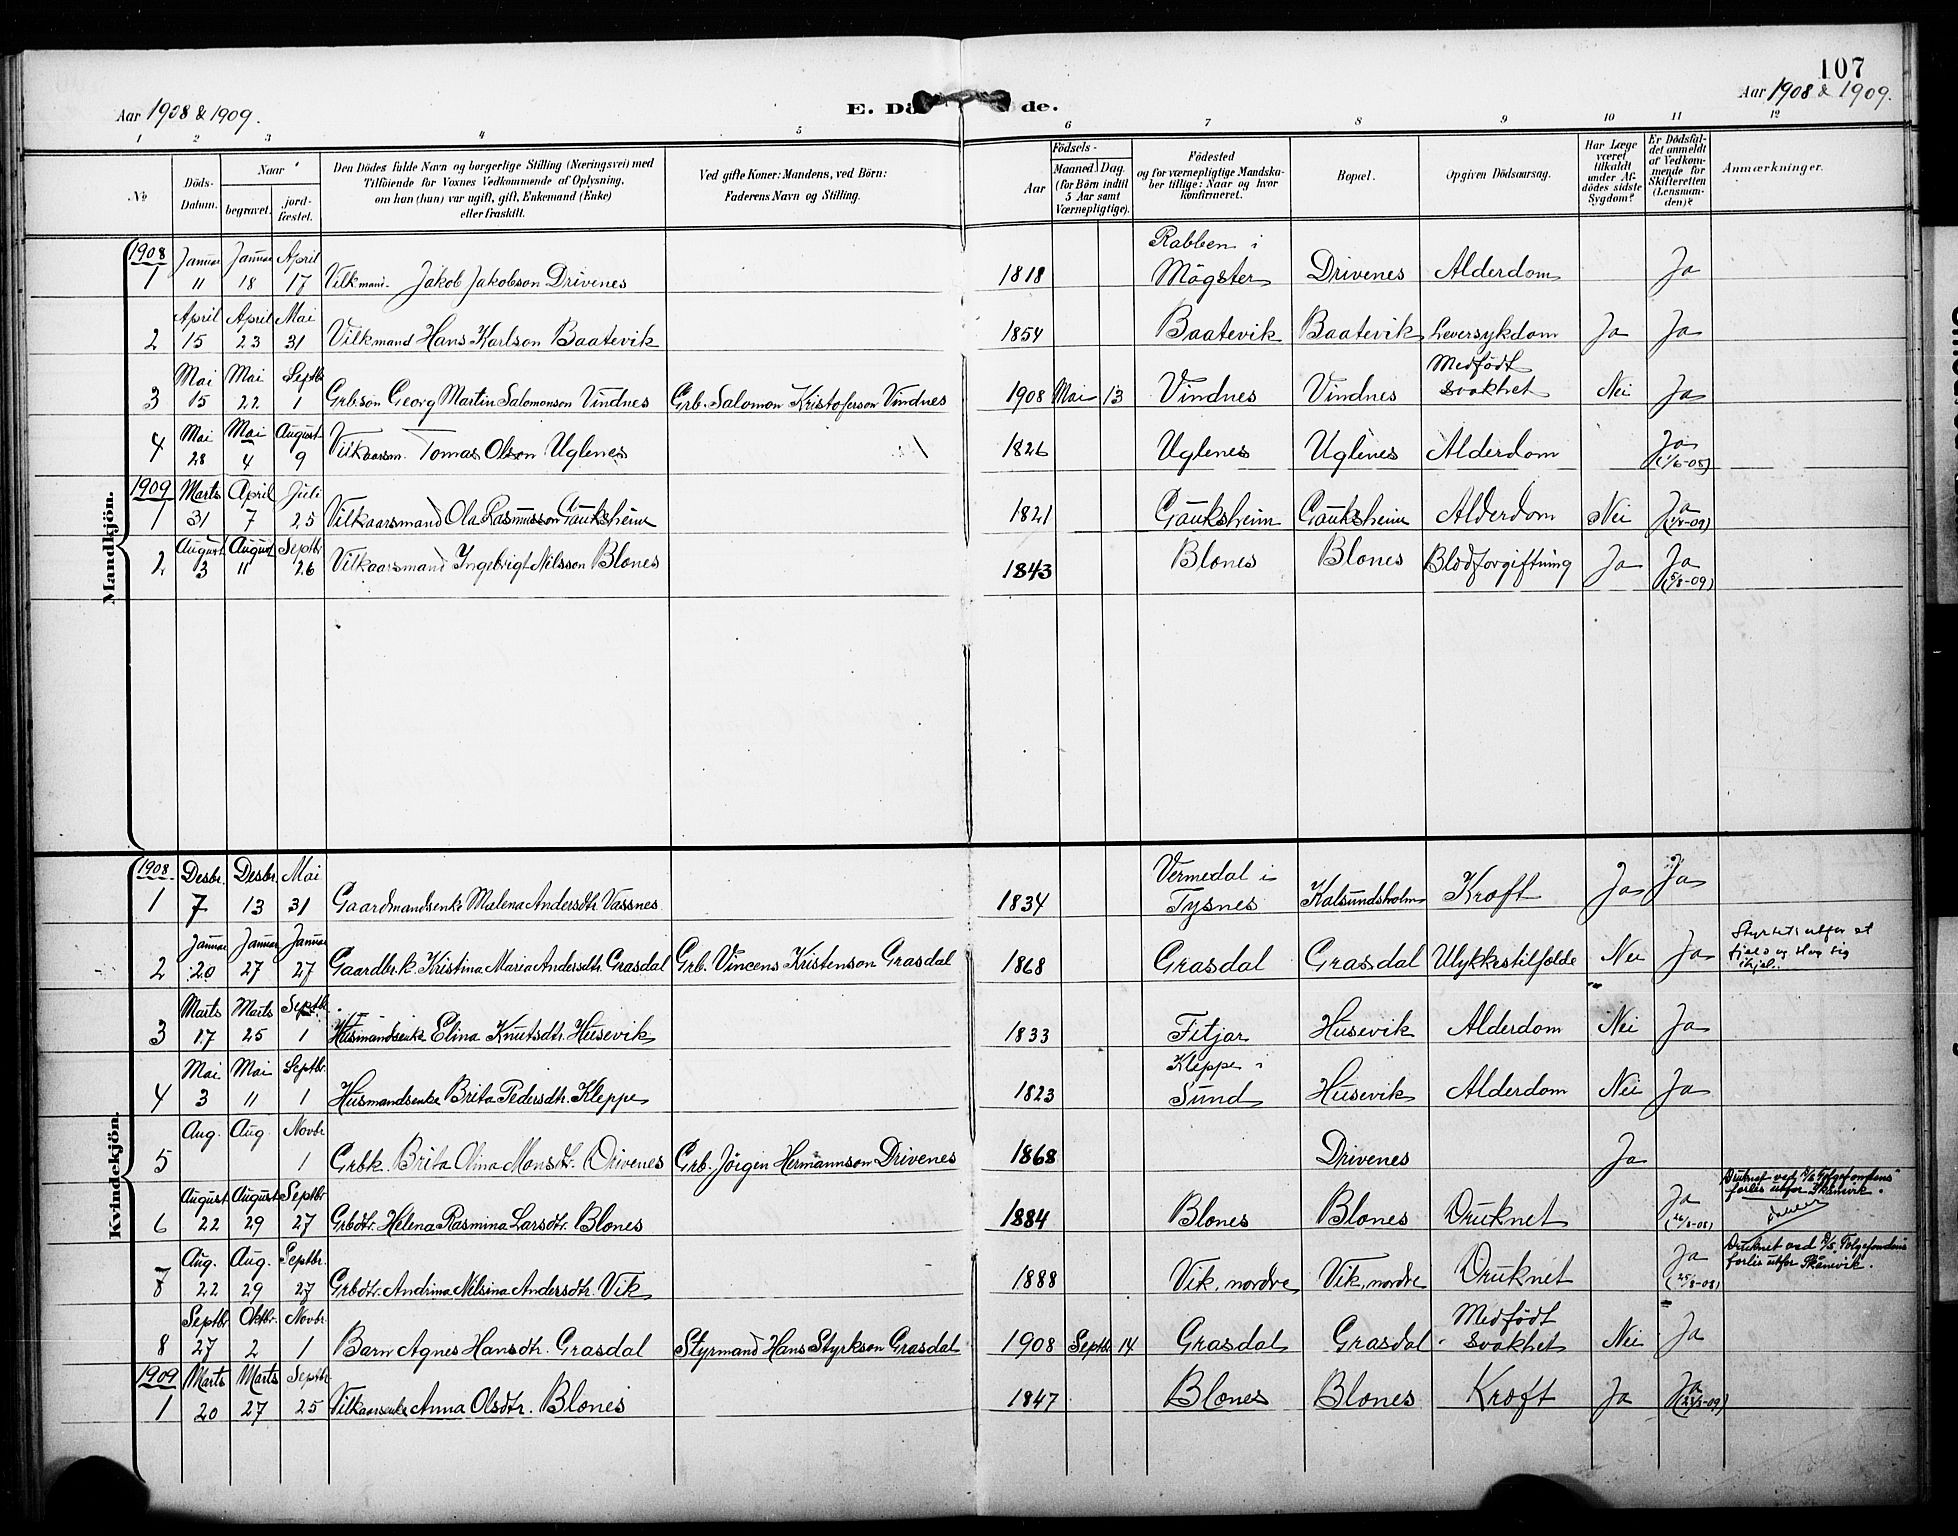 107
Aar 1908 & 1909.
E. Dö de.
Aar 1908 & 1909.
1 2 3 4 5 6 7 8 9 10 11 12
No.
Döds-Datum.
Naar
begravet.
jord-fæstet.
Den Dödes fulde Navn og borgerlige Stilling (Næringsvei) med
Tilföiende for Voxnes Vedkommende af Oplysning,
om han (hun) var ugift, gift, Enkemand (Enke)
eller fraskilt.
Ved gifte Koner: Mandens, ved Börn:
Faderens Navn og Stilling.
Födsels-
Aar
Maaned Dag.
(for Börn indtil
5 Aar samt
Værnepligtige).
Födested
og for værnepligtige Mandska-
ber tillige: Naar og hvor
konfirmeret.
Bopæl.
Opgiven Dödsaarsag.
Har Læge
været
tilkaldt
under Af-
dödes sidste
Sygdom?
Er Dödsfal-
det anmeldt
af Vedkom-
mende for
Skifteretten
(Lensman-
den)?
Anmærkninger.
Mandkjön.
1908
1 Januar 11 Januar 18 April 17 Vilkmand. Jakob Jakobson Drivenes 1818 Rabben i Mögster Drivenes Alderdom Ja
2 April 15 April 23 Mai 31 Vilkmand Hans Karlson Baatevik 1854 Baatevik Baatevik Leversykdom Ja Ja
3 Mai 15 Mai 22 Septbr 1 Grb.sön Georg Martin Salomonson Vindnes Grb. Salomon Kristoferson Vindnes 1908 Mai 13 Vindnes Vindnes Medfödt svakhet Nei Ja
4 Mai 28 Mai 4 August 9 Vilkaarsm. Tomas Olson Uglenes 1826 Uglenes Uglenes Alderdom Ja (1/6-08)
1909
1 Marts 31 April 7 Juli 25 Vilkaarsmand Ola Rasmusson Gauksheim 1821 Gauksheim Gauksheim Alderdom Nei Ja
2 August 3 August 11 Septbr 26 Vilkaarsmand Ingebrigt Nilsson Blones 1843 Blones Blones Blodforgiftning Ja Ja (5/8-09)
Kvindekjön.
1908.
1 Desbr. 7 Desbr. 13 Mai 31 Gaardmandsenke Malena Andersdtr. Vassnes 1834 Vermedal i Tysnes Kalsundsholm Kræft Ja Ja
2 Januar 20 Januar 27 Januar 27 Gaardbr.k. Kristina Maria Andersdtr. Grasdal Grb. Vincens Kristenson Grasdal 1868 Grasdal Grasdal Ulykkestilfælde Nei Ja Styrtet utfor et fjeld og slog sig ihjel.
3 Marts 17 Marts 25 Septbr. 1 Husmandsenke Elina Knutsdtr. Husevik 1833 Fitjar Husevik Alderdom Nei Ja
4 Mai 3 Mai 11 Septbr. 1 Husmandsenke Brita Pedersdtr. Kleppe 1823 Kleppe i Sund Husevik Alderdom Nei Ja
5 Aug. Aug. Novbr 1 Grbk. Brita Olina Monsdtr. Drivenes Grb. Jörgen Hermannson Drivenes 1868 Drivenes Ja
6 August 22 August 29 Septbr 27 Grbdtr. Helena Rasmina Larsdtr. Blones 1884 Blones Blones Druknet Ja (26/8-08) Druknet ved D/S "Folgefondens" forlis utfor Skånevik.
7 Aug. 22 Aug. 29 Septbr. 27 Grbdtr. Andrina Nilsina Andersdtr. Vik 1888 Vik, nordre Vik, nordre Druknet Ja (25/8-08) Druknet ved D/S "Folgefondens" forlis utfor Skånevik.
8 Septbr 27 Oktbr. 2 Novbr. 1 Barn Agnes Hansdtr. Grasdal Styrmand Hans Styrkson Grasdal 1908 Septbr 14 Grasdal Grasdal Medfödt svakhet Nei Ja
1909
1 Marts 20 Marts 27 Septbr 25 Vilkaarsenke Anna Olsdtr. Blones 1847 Blones Blones Kræft Ja Ja